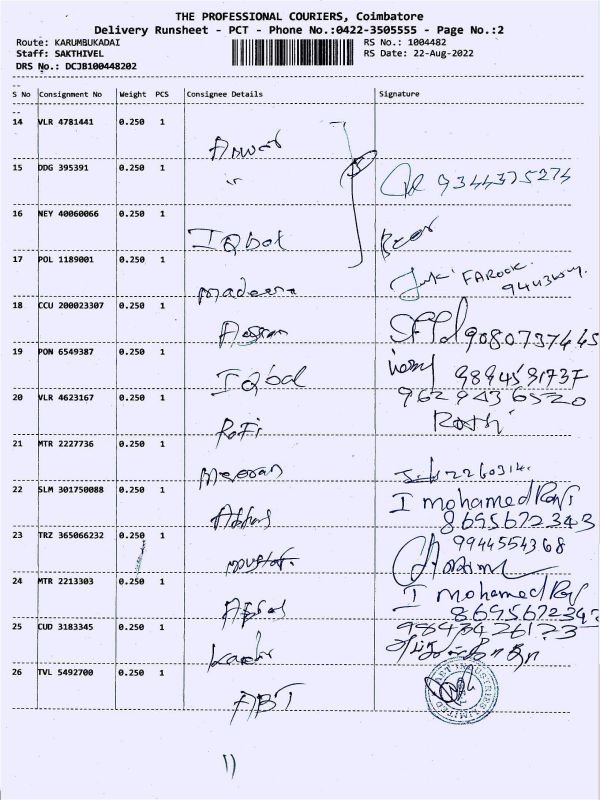 THE PROFESSIONAL COURIERS, Coimbatore
Delivery Runsheet - PCT - Phone No.:0422-3505555 - Page No.:2
Route: KARUMBUKADAI RS No.: 1004482
Staff: SAKTHIVEL RS Date: 22-Aug-2022
DRS No.: DCJB100448202
S No Consignment No Weight PCS Consignee Details Signature
14 VLR 4781441 0.250 1
Anwar
15 DDG 395391 0.250 1
9344375274
16 NEY 40060066 0.250 1
IQbal
17 POL 1189001 0.250 1
FAROOK
madeena
18 CCU 200023307 0.250 1
9080737445
19 PON 6549387 0.250 1
IQbal
20 VLR 4623167 0.250 1
9629436520
Rafi
21 MTR 2227736 0.250 1
Meeran
2260314
22 SLM 301750088 0.250 1
I mohamed Rafi
8695672343
23 TRZ 365066232 0.250 1
9944554368
24 MTR 2213303 0.250 1
I mohamed Rafi
25 CUD 3183345 0.250 1
26 TVL 5492700 0.250 1
ABT
ABT INDUSTRIES LIMITED
11